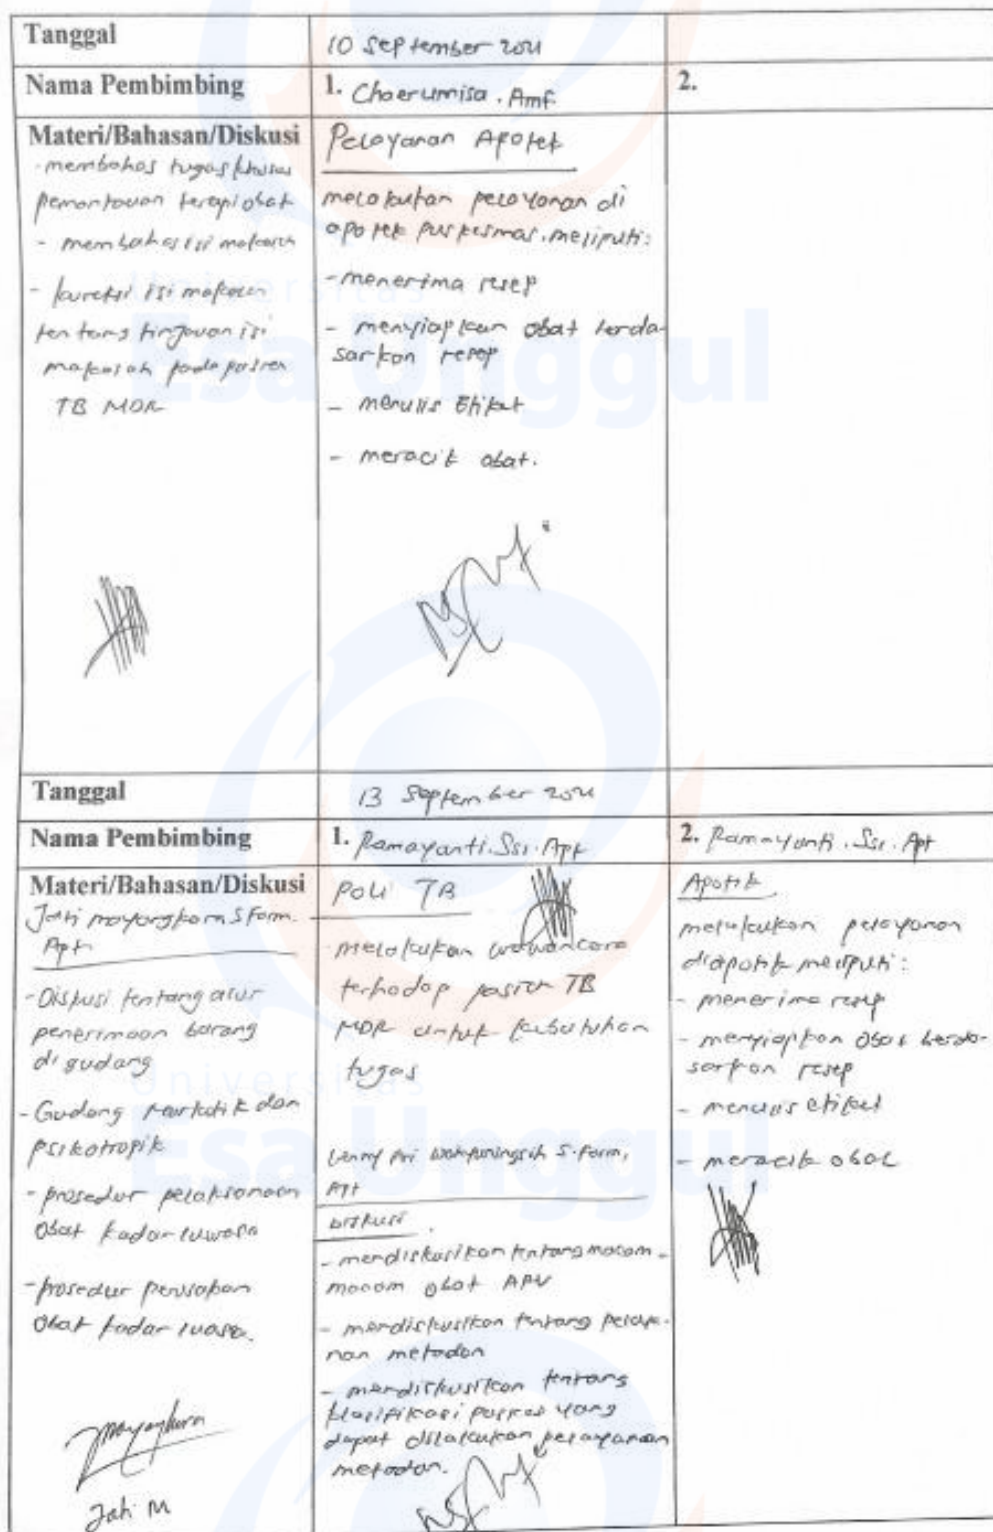 Tanggal
10 September 2021
Nama Pembimbing
1. Chaerunisa. Amf.
2.
Materi/Bahasan/Diskusi
- membahas tugas khusus
pemantauan terapi obat
- membahas isi makalah
- koreksi isi makalah
tentang tinjauan isi
makalah pada pasien
TB MDR
Pelayanan Apotek
melakukan pelayanan di
apotek puskesmas. meliputi:
- menerima resep
- menyiapkan obat berda-
sarkan resep
- menulis Etiket
- meracik obat.
Universitas
Esa Unggul
Tanggal
13 September 2021
Nama Pembimbing
1. Ramayanti. SSi. Apt
2. Ramayanti. SSi. Apt
Materi/Bahasan/Diskusi
Jati mayangkara S Farm.
Apt
- Diskusi tentang alur
penerimaan barang
di gudang
- Gudang narkotik dan
psikotropik
- prosedur pelaksanaan
obat kadaluwasa
- prosedur
obat kadaluasa.
Jati M
Poli TB
- melakukan wawancara
terhadap pasien TB
MDR untuk kebutuhan
tugas
S. Farm,
Apt
Diskusi
- mendiskusikan tentang macam-
macam obat ARV
- mendiskusikan tentang pelaya-
nan metadon
- mendiskusikan tentang
klasifikasi yang
dapat dilakukan pelayanan
metadon.
Apotik
melakukan pelayanan
diapotik meliputi:
- menerima resep
- menyiapkan obat berda-
sarkan resep
- menulis etiket
- meracik obat
Universitas
Esa Unggul